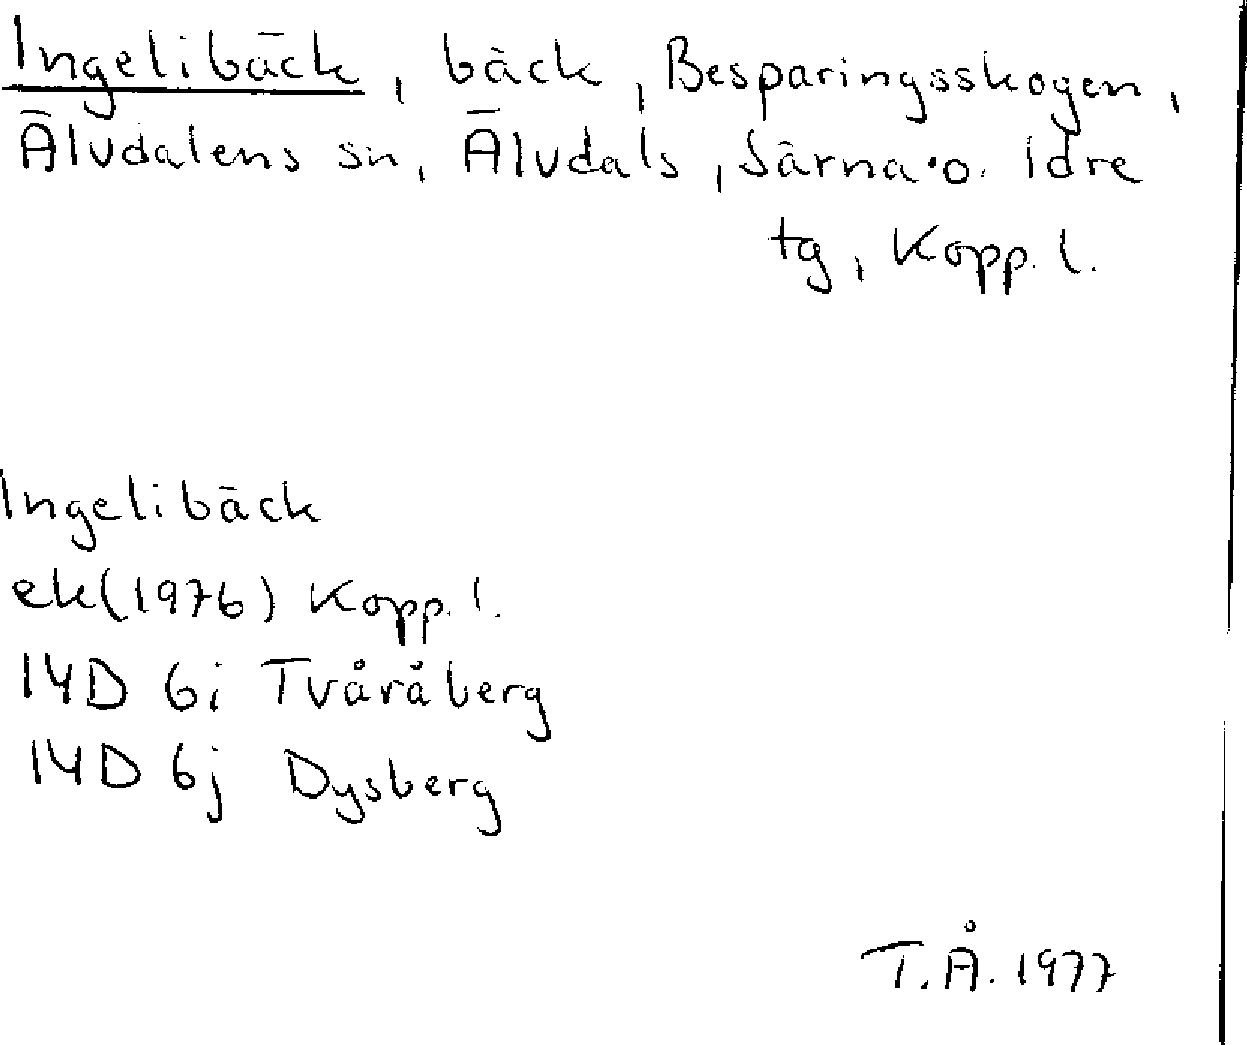 Ingelibäck, bäck, Besparingsskogen,
Älvdalens sn, Älvdals, Särna o. Idre
tg, Kopp. l.
Ingelibäck
ek(1976) Kopp. l.
14D 6i Tvåråberg
14D 6j Dysberg
T.Å. 1977